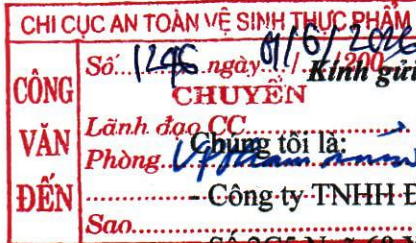 CHI CỤC AN TOÀN VỆ SINH THỰC PHẨM
CÔNG VĂN ĐẾN
Số...1246 ngày 01/6/2026 / 200
Kính gửi
CHUYỂN
Lãnh đạo CC
Chúng tôi là:
Phòng
- Công ty TNHH Đ
Sao